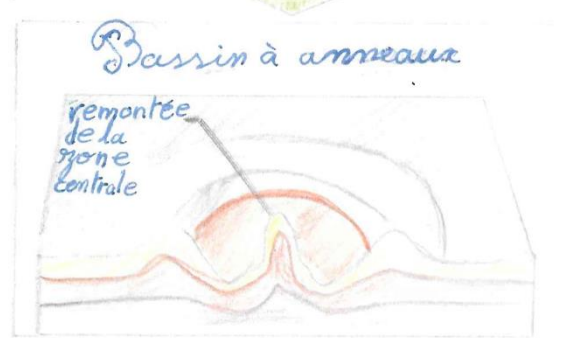 Bassin à anneaux
remontée
de la
zone
centrale